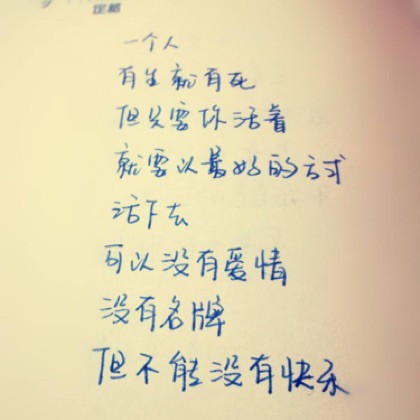 定格
一个人
有生就有死
但只要你活着
就要以最好的方式
活下去
可以没有爱情
没有名牌
但不能没有快乐